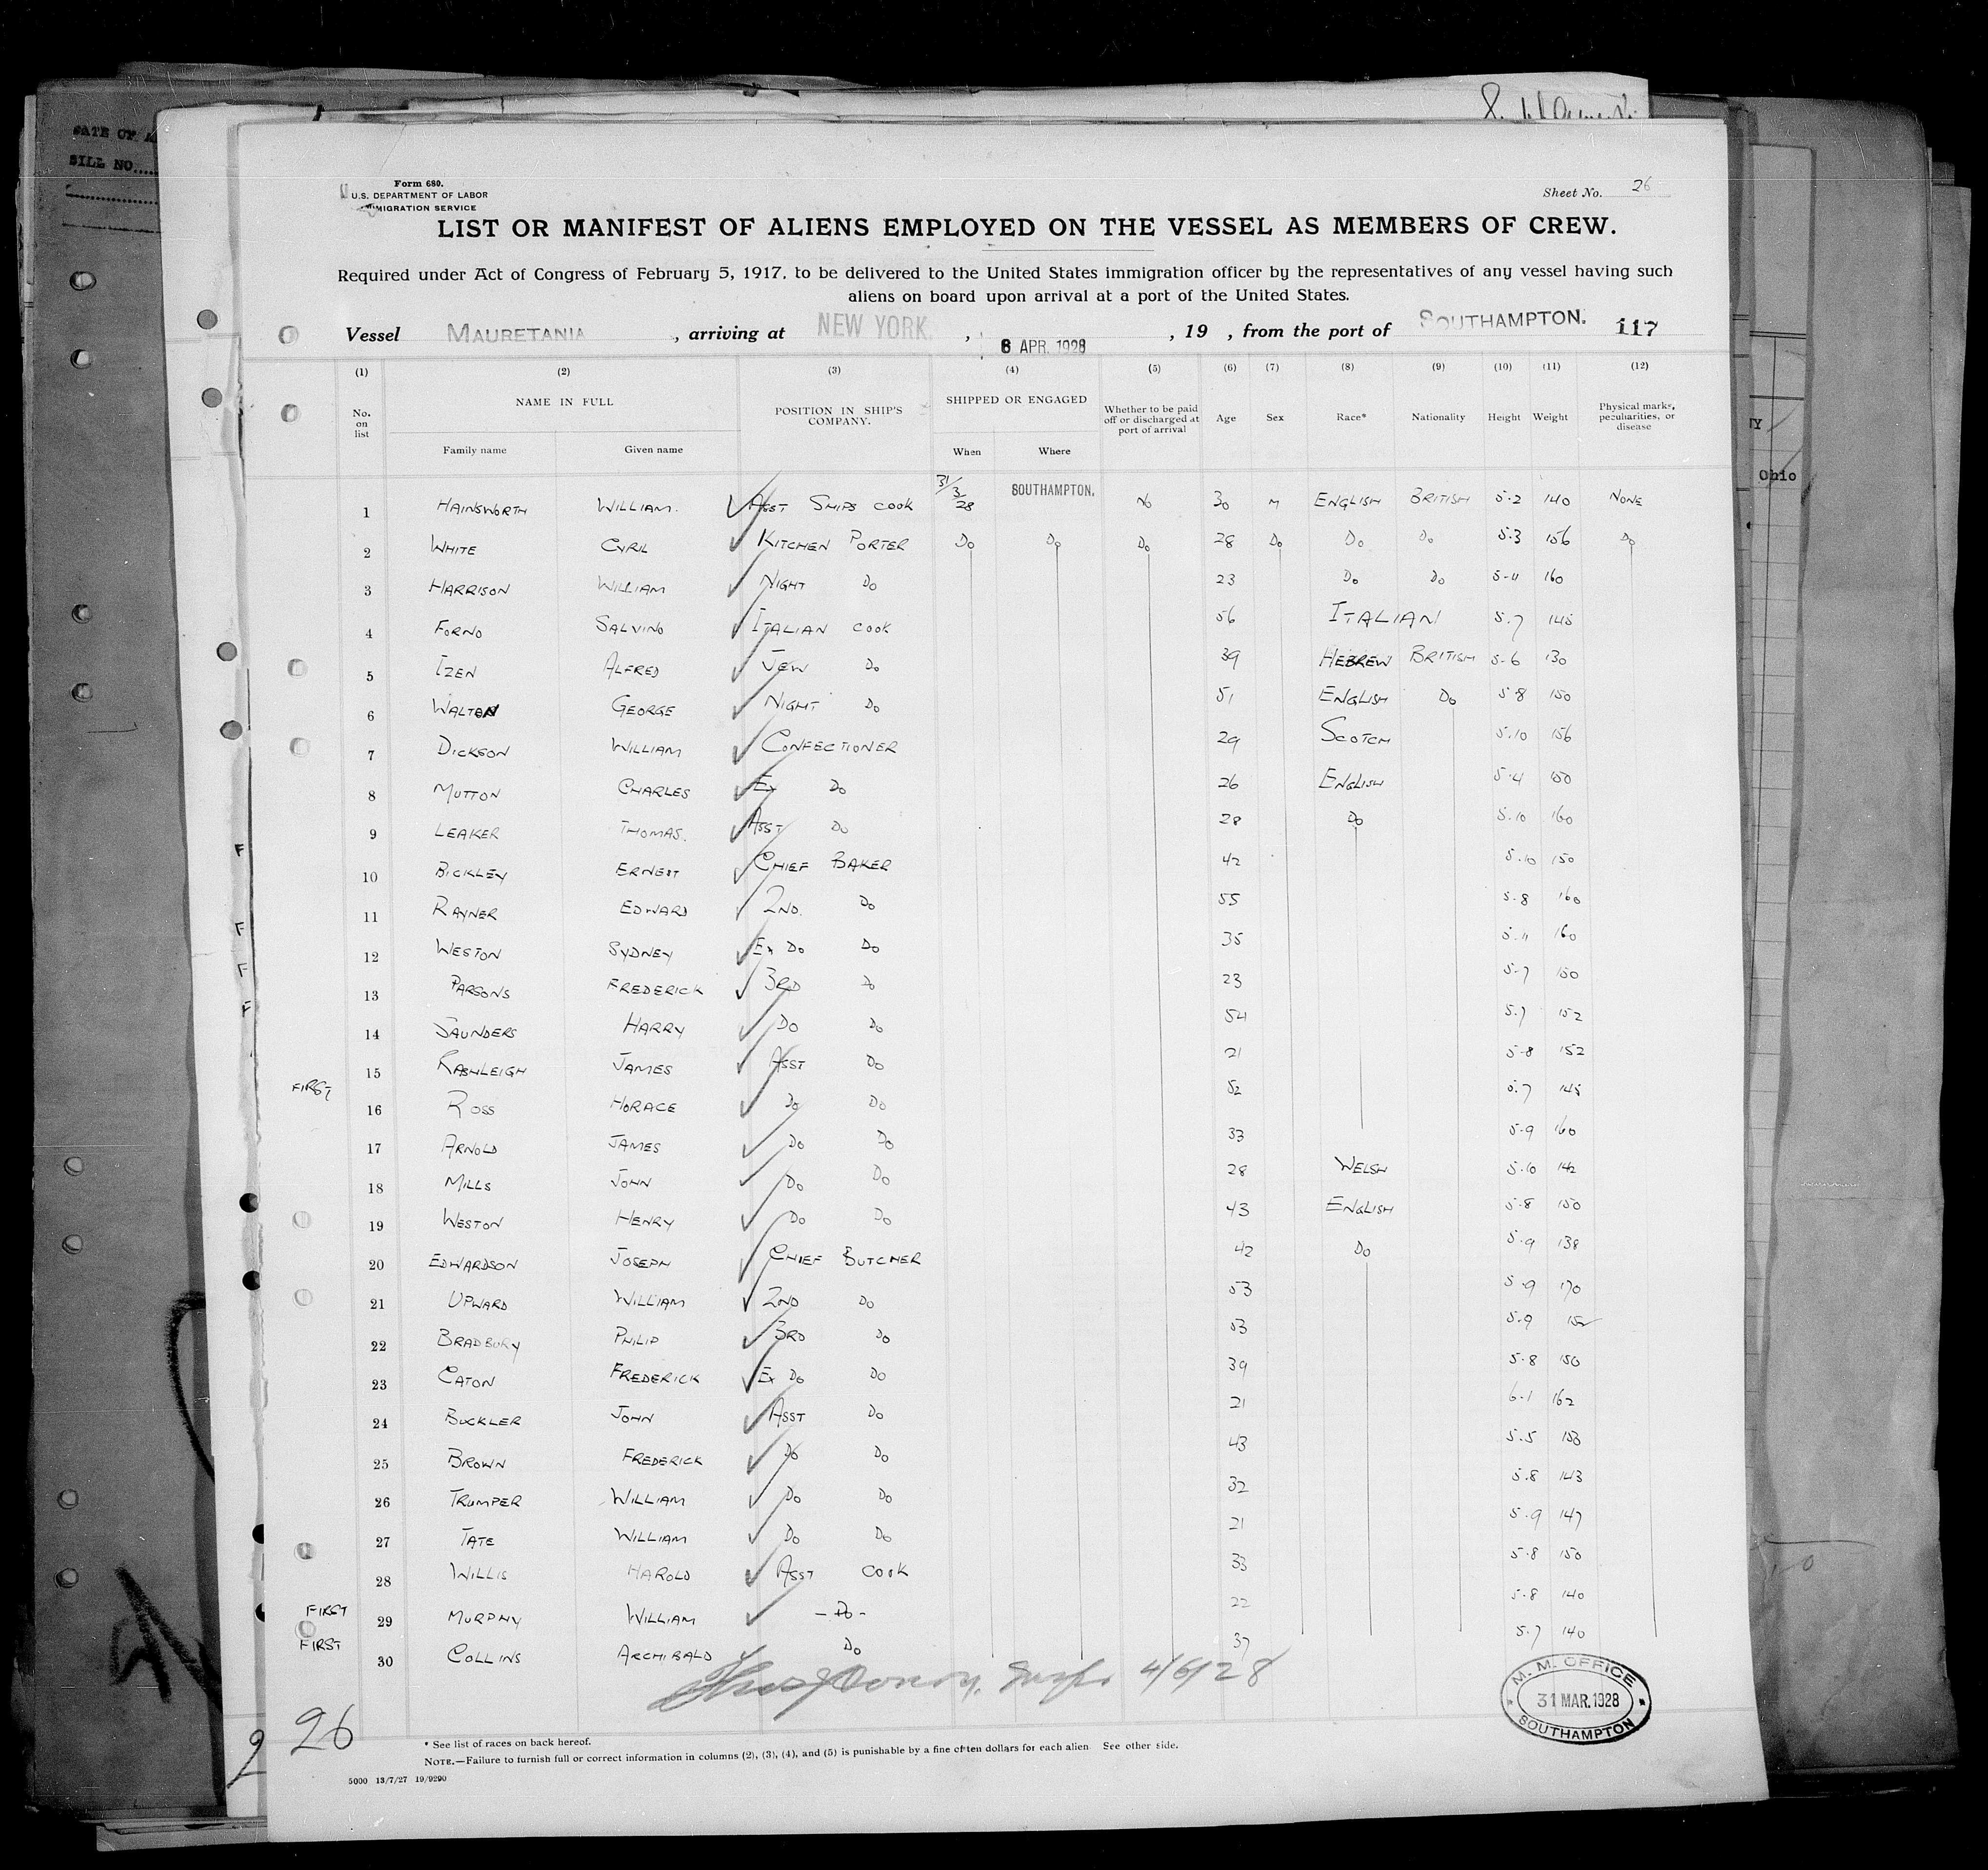 DATE OF A
BILL NO.....
Form 680.
U.S. DEPARTMENT OF LABOR
IMMIGRATION SERVICE
Sheet No. 26
LIST OR MANIFEST OF ALIENS EMPLOYED ON THE VESSEL AS MEMBERS OF CREW.
Required under Act of Congress of February 5, 1917, to be delivered to the United States immigration officer by the representatives of any vessel having such
aliens on board upon arrival at a port of the United States.
Vessel MAURETANIA , arriving at NEW YORK. , 6 APR. 1928 , 19 , from the port of SOUTHAMPTON. 117
(1) (2) (3) (4) (5) (6) (7) (8) (9) (10) (11) (12)
No. on list NAME IN FULL Family name Given name POSITION IN SHIP'S COMPANY. SHIPPED OR ENGAGED When Where Whether to be paid off or discharged at port of arrival Age Sex Race* Nationality Height Weight Physical marks, peculiarities, or disease
1 HAINSWORTH WILLIAM. ASST SHIPS COOK 31/3/28 SOUTHAMPTON. No 30 M ENGLISH BRITISH 5.2 140 NONE
2 WHITE CYRIL KITCHEN PORTER Do Do Do 28 Do Do Do 5.3 156 Do
3 HARRISON WILLIAM NIGHT Do 23 Do Do 5.11 160
4 FORNO SALVINO ITALIAN COOK 56 ITALIAN 5.7 145
5 IZEN ALFRED JEW Do 39 HEBREW BRITISH 5.6 130
6 WALTON GEORGE NIGHT Do 51 ENGLISH Do 5.8 150
7 DICKSON WILLIAM CONFECTIONER 29 SCOTCH 5.10 156
8 MUTTON CHARLES Ex Do 26 ENGLISH 5.4 150
9 LEAKER THOMAS. ASST Do 28 Do 5.10 160
10 BICKLEY ERNEST CHIEF BAKER 42 5.10 150
11 RAYNER EDWARD 2ND. Do 55 5.8 160
12 WESTON SYDNEY Ex Do Do 35 5.11 160
13 PARSONS FREDERICK 3RD Do 23 5.7 150
14 SAUNDERS HARRY Do Do 54 5.7 152
15 RASHLEIGH JAMES ASST Do 21 5.8 152
FIRST 16 ROSS HORACE Do Do 52 5.7 145
17 ARNOLD JAMES Do Do 33 5.9 160
18 MILLS JOHN Do Do 28 WELSH 5.10 142
19 WESTON HENRY Do Do 43 ENGLISH 5.8 150
20 EDWARDSON JOSEPH CHIEF BUTCHER 42 Do 5.9 138
21 UPWARD WILLIAM 2ND Do 53 5.9 170
22 BRADBURY PHILIP 3RD Do 53 5.9 152
23 CATON FREDERICK Ex Do Do 39 5.8 150
24 BUCKLER JOHN ASST Do 21 6.1 162
25 BROWN FREDERICK Do Do 43 5.5 153
26 TRUMPER WILLIAM Do Do 32 5.8 143
27 TATE WILLIAM Do Do 21 5.9 147
28 WILLIS HAROLD ASST COOK 33 5.8 150
FIRST 29 MURPHY WILLIAM - Do - 22 5.8 140
FIRST 30 COLLINS ARCHIBALD Do 37 5.7 140
4/6/28
M. M. OFFICE
31 MAR. 1928
SOUTHAMPTON
26
* See list of races on back hereof.
NOTE.—Failure to furnish full or correct information in columns (2), (3), (4), and (5) is punishable by a fine of ten dollars for each alien. See other side.
5000 13/7/27 19/9290
F
F
F
F
Ohio